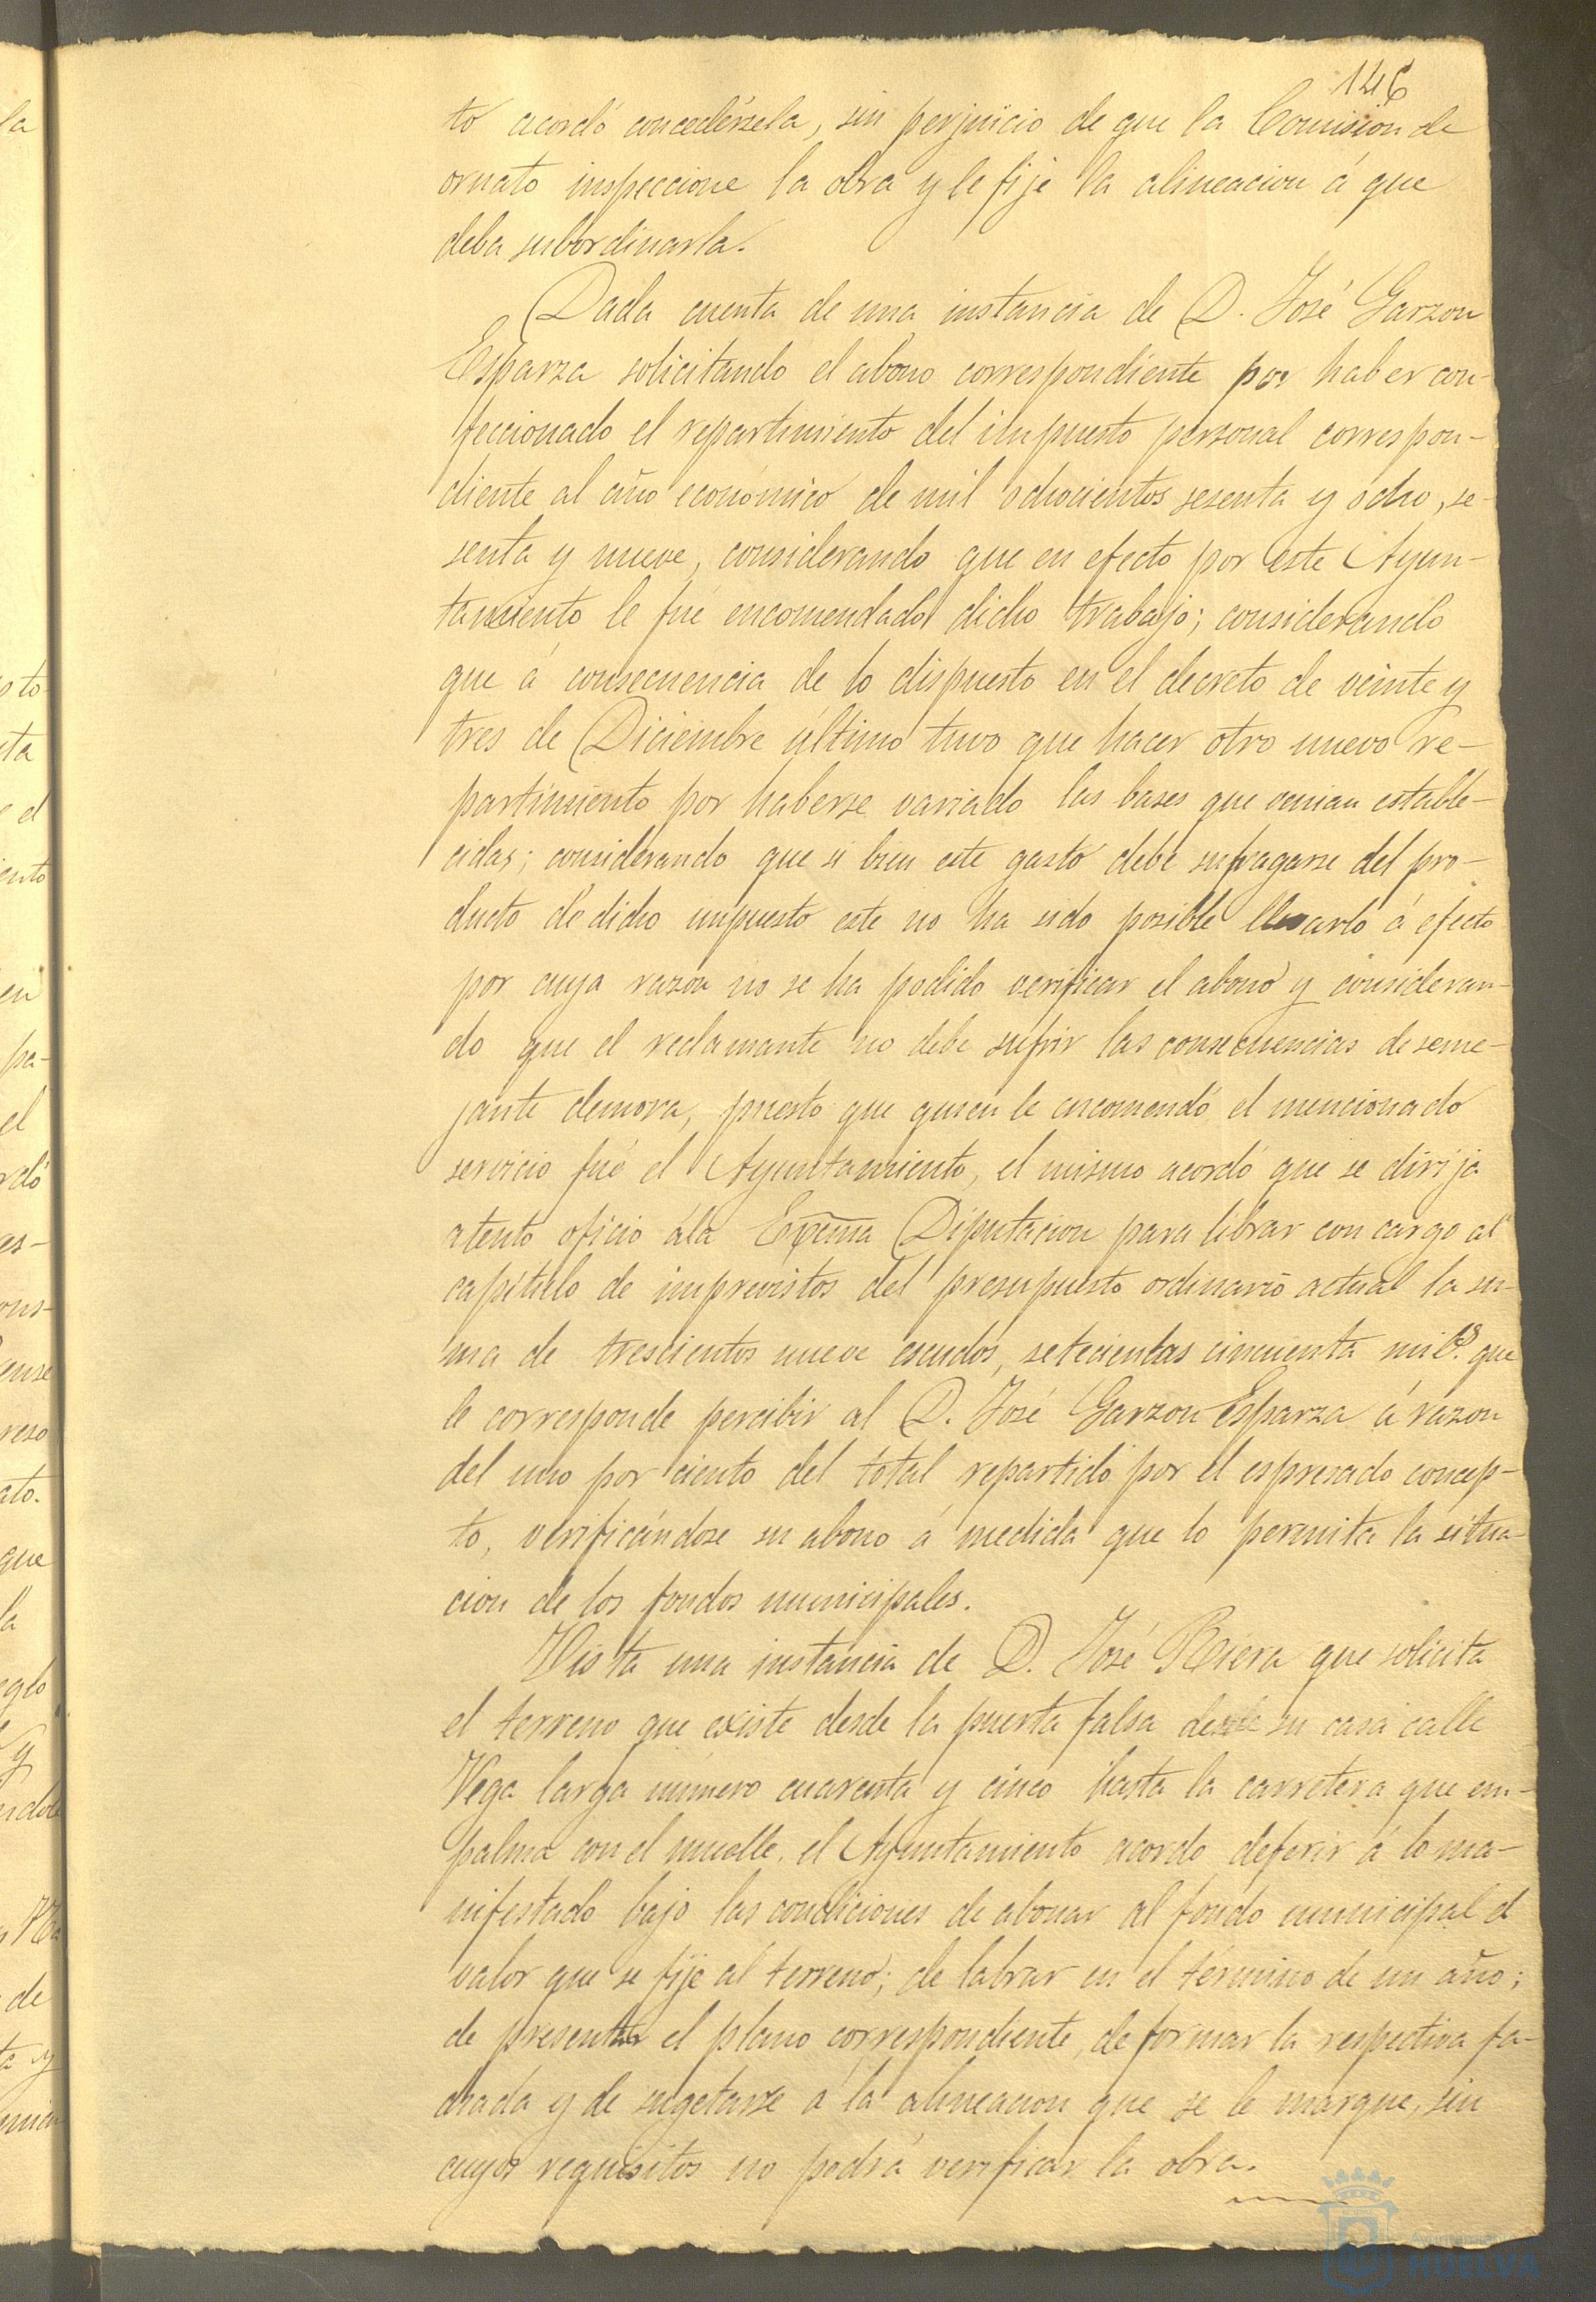 146
to acordó concedérsela, sin perjuicio de que la Comision de
ornato inspeccione la obra y le fije la alineacion á que
deba subordinarla.
Dada cuenta de una instancia de D. José Garzon
Esparza solicitando el abono correspondiente por haber con-
feccionado el repartimiento del impuesto personal correspon-
diente al año económico de mil ochocientos sesenta y ocho, se-
senta y nueve, considerando que en efecto por este Ayun-
tamiento le fué encomendado dicho trabajo; considerando
que á consecuencia de lo dispuesto en el decreto de veinte y
tres de Diciembre último tuvo que hacer otro nuevo re-
partimiento por haberse variado las bases que venian estable-
cidas; considerando que si bien este gasto debe sufragarse del pro-
ducto de dicho impuesto este no ha sido posible llevarlo á efecto
por cuya razon no se ha podido verificar el abono y consideran-
do que el reclamante no debe sufrir las consecuencias de seme-
jante demora, puesto que quien le encomendó el mencionado
servicio fué el Ayuntamiento, el mismo acordó que se dirija
atento oficio á la Excma Diputacion para librar con cargo al
capítulo de imprevistos del presupuesto ordinario actual la su-
ma de trescientos nueve escudos, setecientas cincuenta mils. que
le corresponde percibir al D. José Garzon Esparza á razon
del uno por ciento del total repartido por el espresado concep-
to, verificándose su abono á medida que lo permita la situa-
cion de los fondos municipales.
Vista una instancia de D. José Riera que solicita
el terreno que existe desde la puerta falsa de su casa calle
Vega larga número cuarenta y cinco hasta la carretera que em-
palma con el muelle, el Ayuntamiento acordo deferir á lo ma-
nifestado bajo las condiciones de abonar al fondo municipal el
valor que se fije al terreno; de labrar en el término de un año;
de presentar el plano correspondiente, de formar la respectiva fa-
chada y de sugetarse á la alineacion que se le marque, sin
cuyos requisitos no podrá verificar la obra.
Ayuntamiento
HUELVA